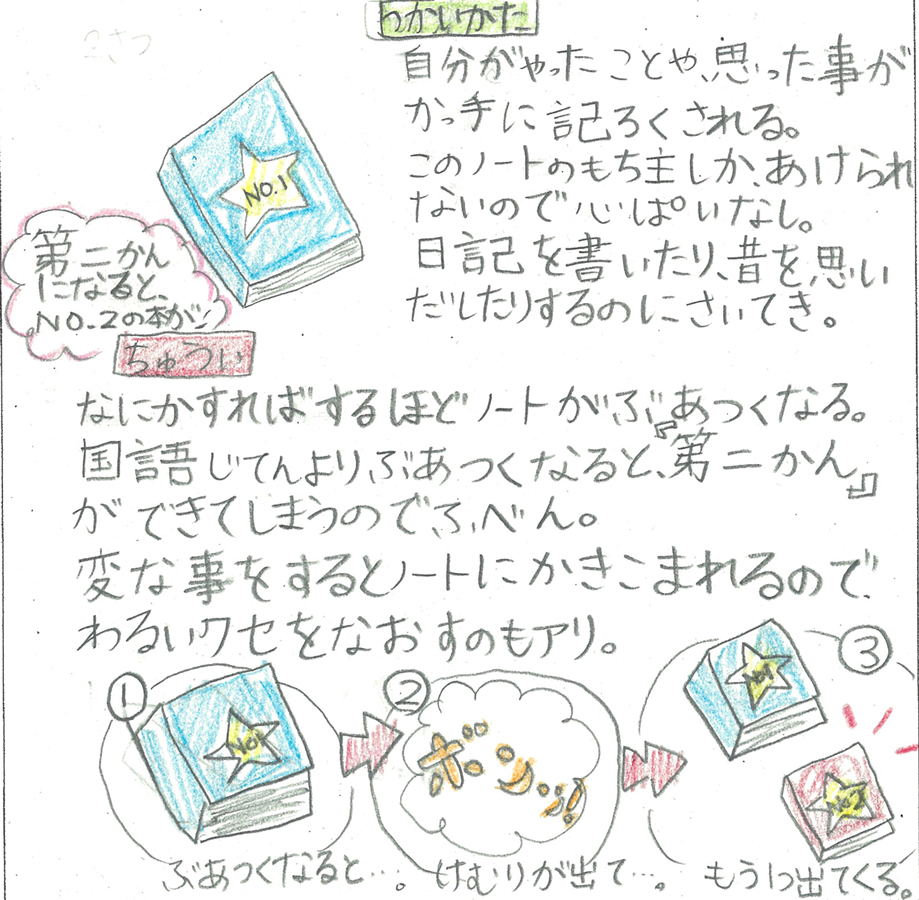 つかいかた
自分がやったことや、思った事が
かっ手に記ろくされる。
このノートのもち主しか、あけられ
ないので心ぱいなし。
日記を書いたり、昔を思い
だしたりするのにさいてき。
NO.1
第二かん
になると、
NO.2の本が!
ちゅうい
なにかすればするほどノートがぶあつくなる。
国語じてんよりぶあつくなると、『第二かん』
ができてしまうので、ふべん。
変な事をするとノートにかきこまれるので
わるいクセをなおすのもアリ。
①
NO1
ぶあつくなると…。
②
ボンッ!
けむりが出て…。
③
NO1
NO2
もう1つ出てくる。